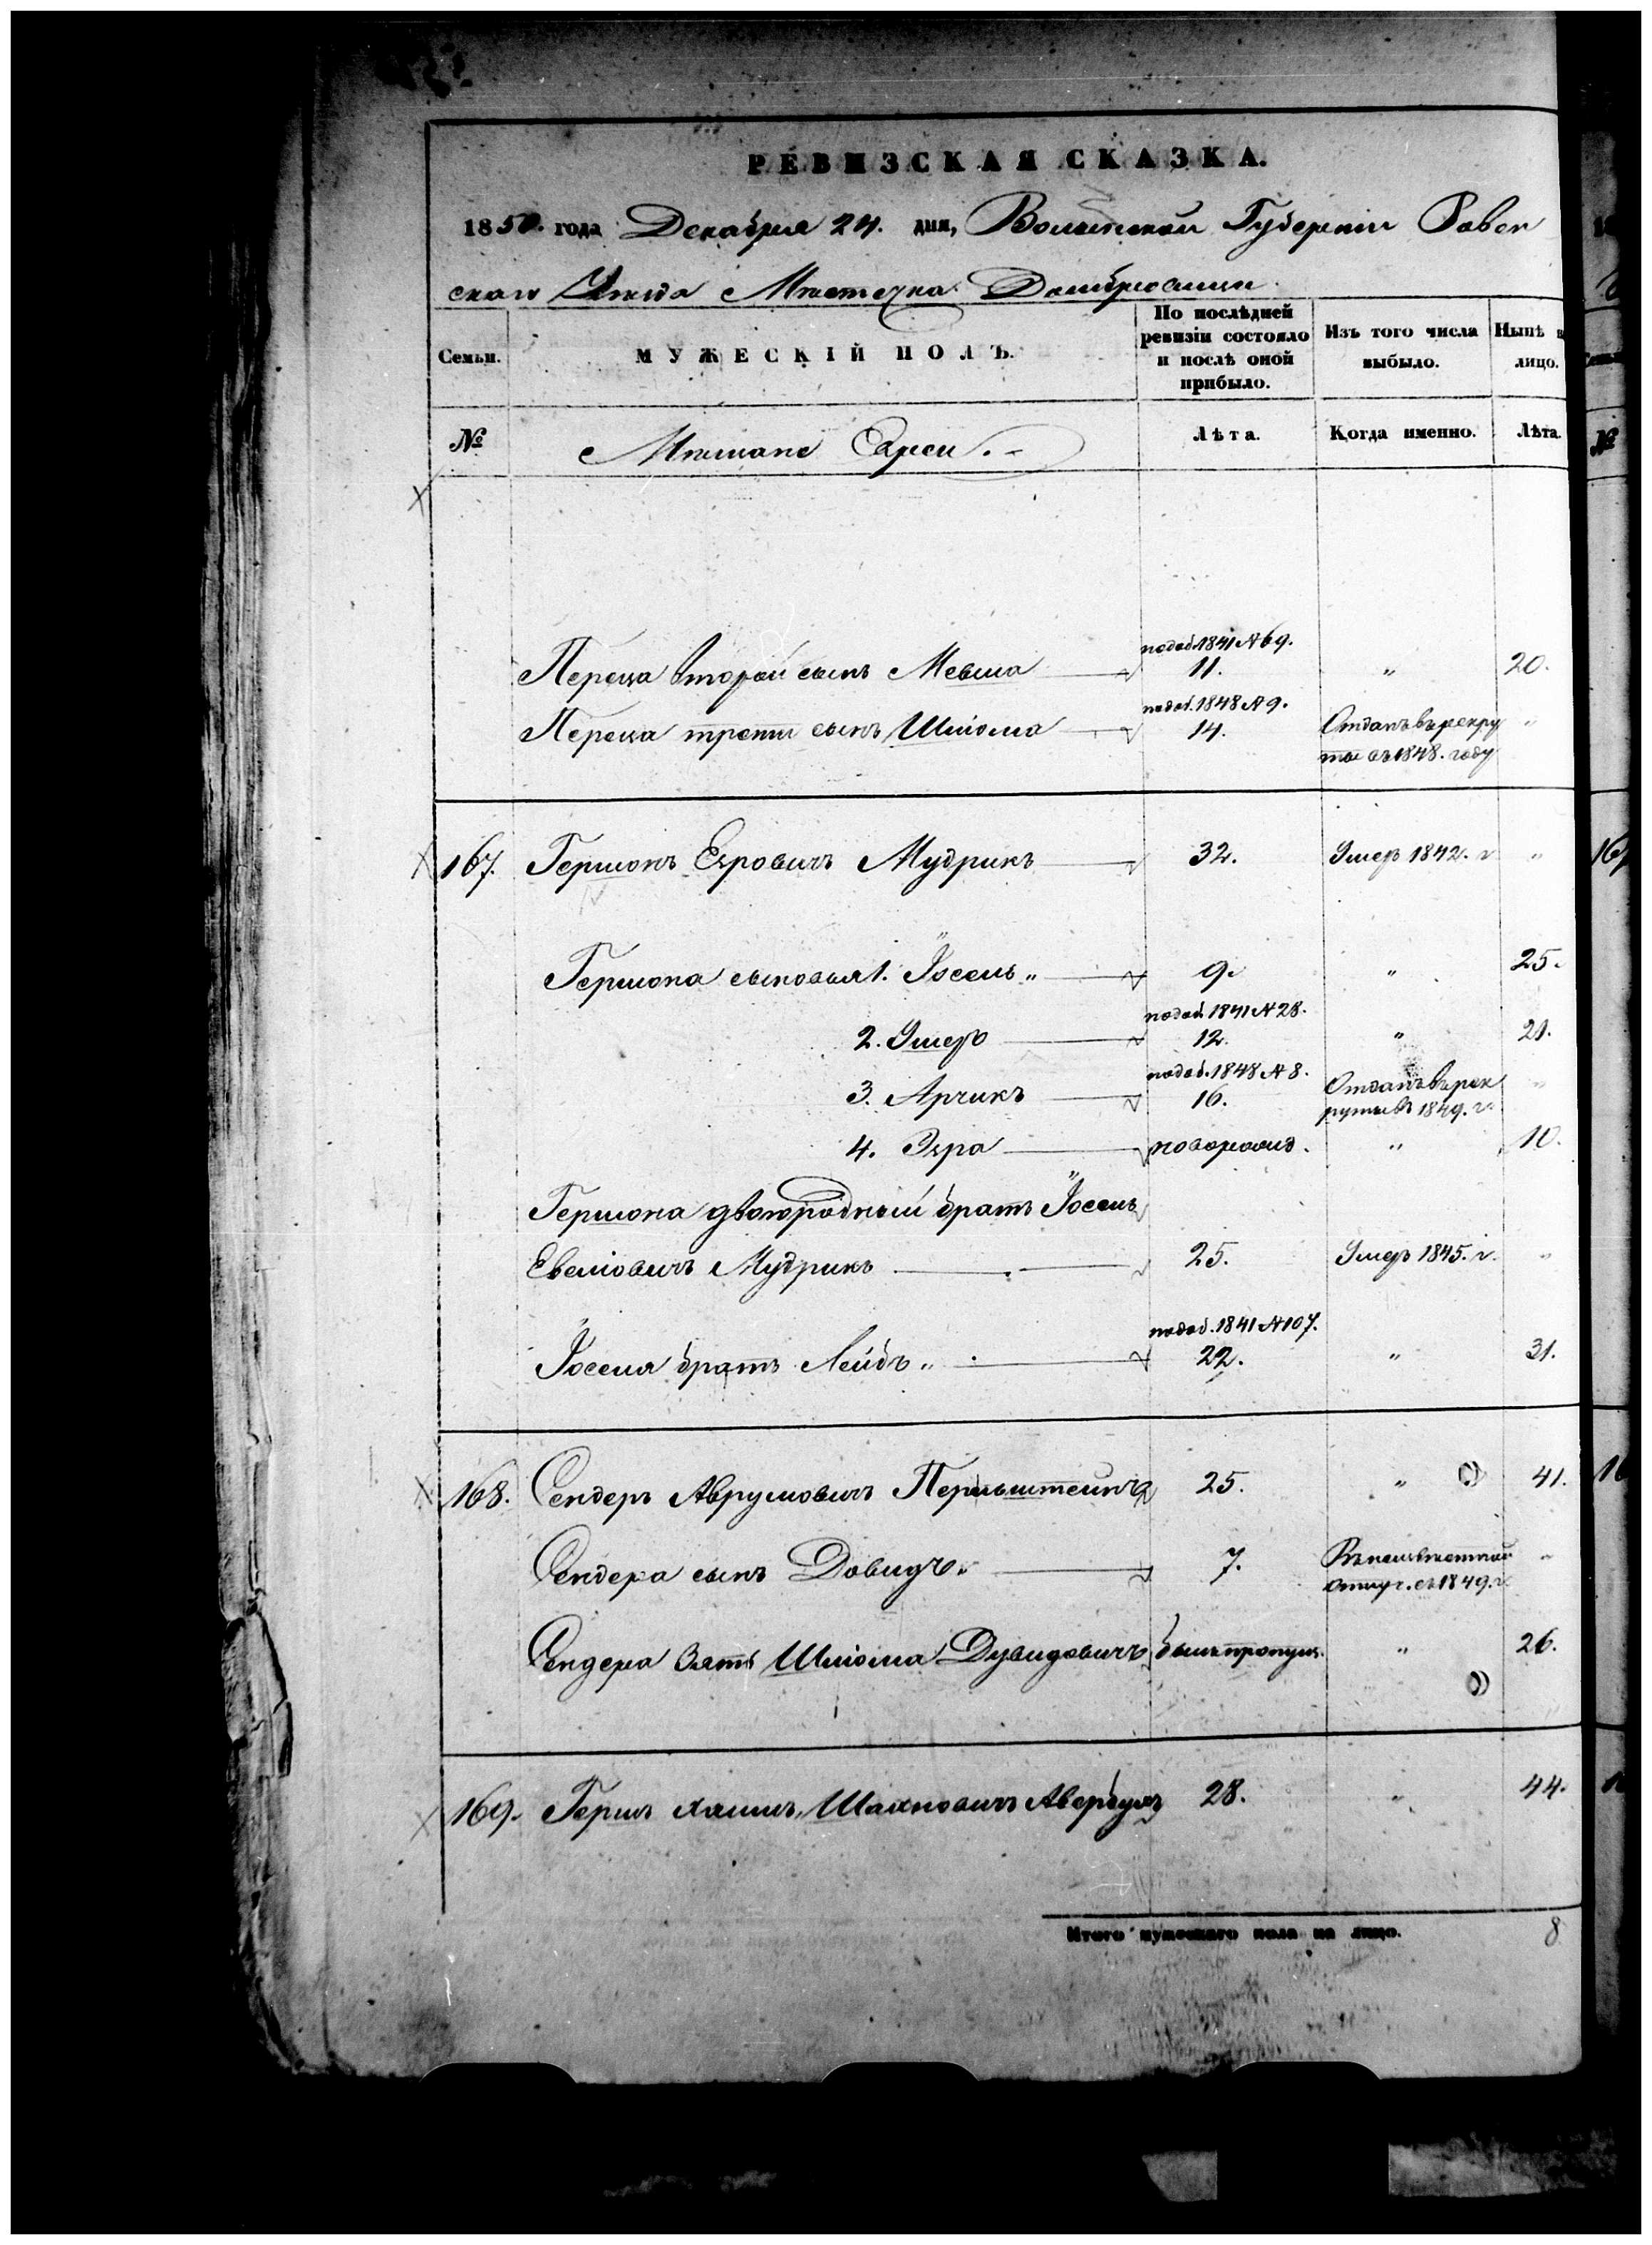 РЕВИЗСКАЯ СКАЗКА.
1850. года Декабря 24. дня, Волынской Губернии Ровен
скаго Уезда Местечка Домбровицы.
Семьи.
МУЖЕСКІЙ ПОЛЪ.
По послѣдней
ревизіи состояло
и послѣ оной
прибыло.
Изъ того числа
выбыло.
Нынѣ н
лицо.
№
Мещане Евреи.
Лѣта.
Когда именно.
Лѣта.
№
Переца второй сынъ Мевша
подоб. 1841 № 69.
11.
"
20.
Переца третій сынъ Шліома
подоб. 1848 № 9.
14.
Отданъ въ рекру
ты въ 1848. году
"
167. Гершонъ Езровичъ Мудрикъ 32. Умеръ 1842. г "
Гершона сыновья 1. Іосель " 9. " 25.
подоб. 1841 № 28.
2. Умеръ 12. " 21.
подоб. 1848 № 8.
3. Арчикъ 16.
Отданъ въ рек
руты въ 1849. г.
"
4. Эзра новорожд. " 10.
Гершона двоюродный братъ Іосель
Евеліовичъ Мудрикъ 25. Умеръ 1845. г. "
подоб. 1841 № 107.
Іоселя братъ Лейбъ " 22. " 31.
168. Сендеръ Аврумовичъ Перльштейнъ 25. " 41.
Сендера сынъ Довидъ. 7.
отлуч. съ 1849. г
"
Сендера Зять Шліома Дувидовичъ былъ пропущ. " 26.
169. Герш Хаимъ Шахновичъ Авербухъ 28. " 44.
Итого мужескаго пола на лицо. 8